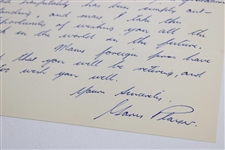 hospitality has been simply out-
standing, and may I take this
opportunity of wishing you all the
luck in the world in the future.
Many foreign fans have
that you will be retiring, and
wish you well.
Yours Sincerely,